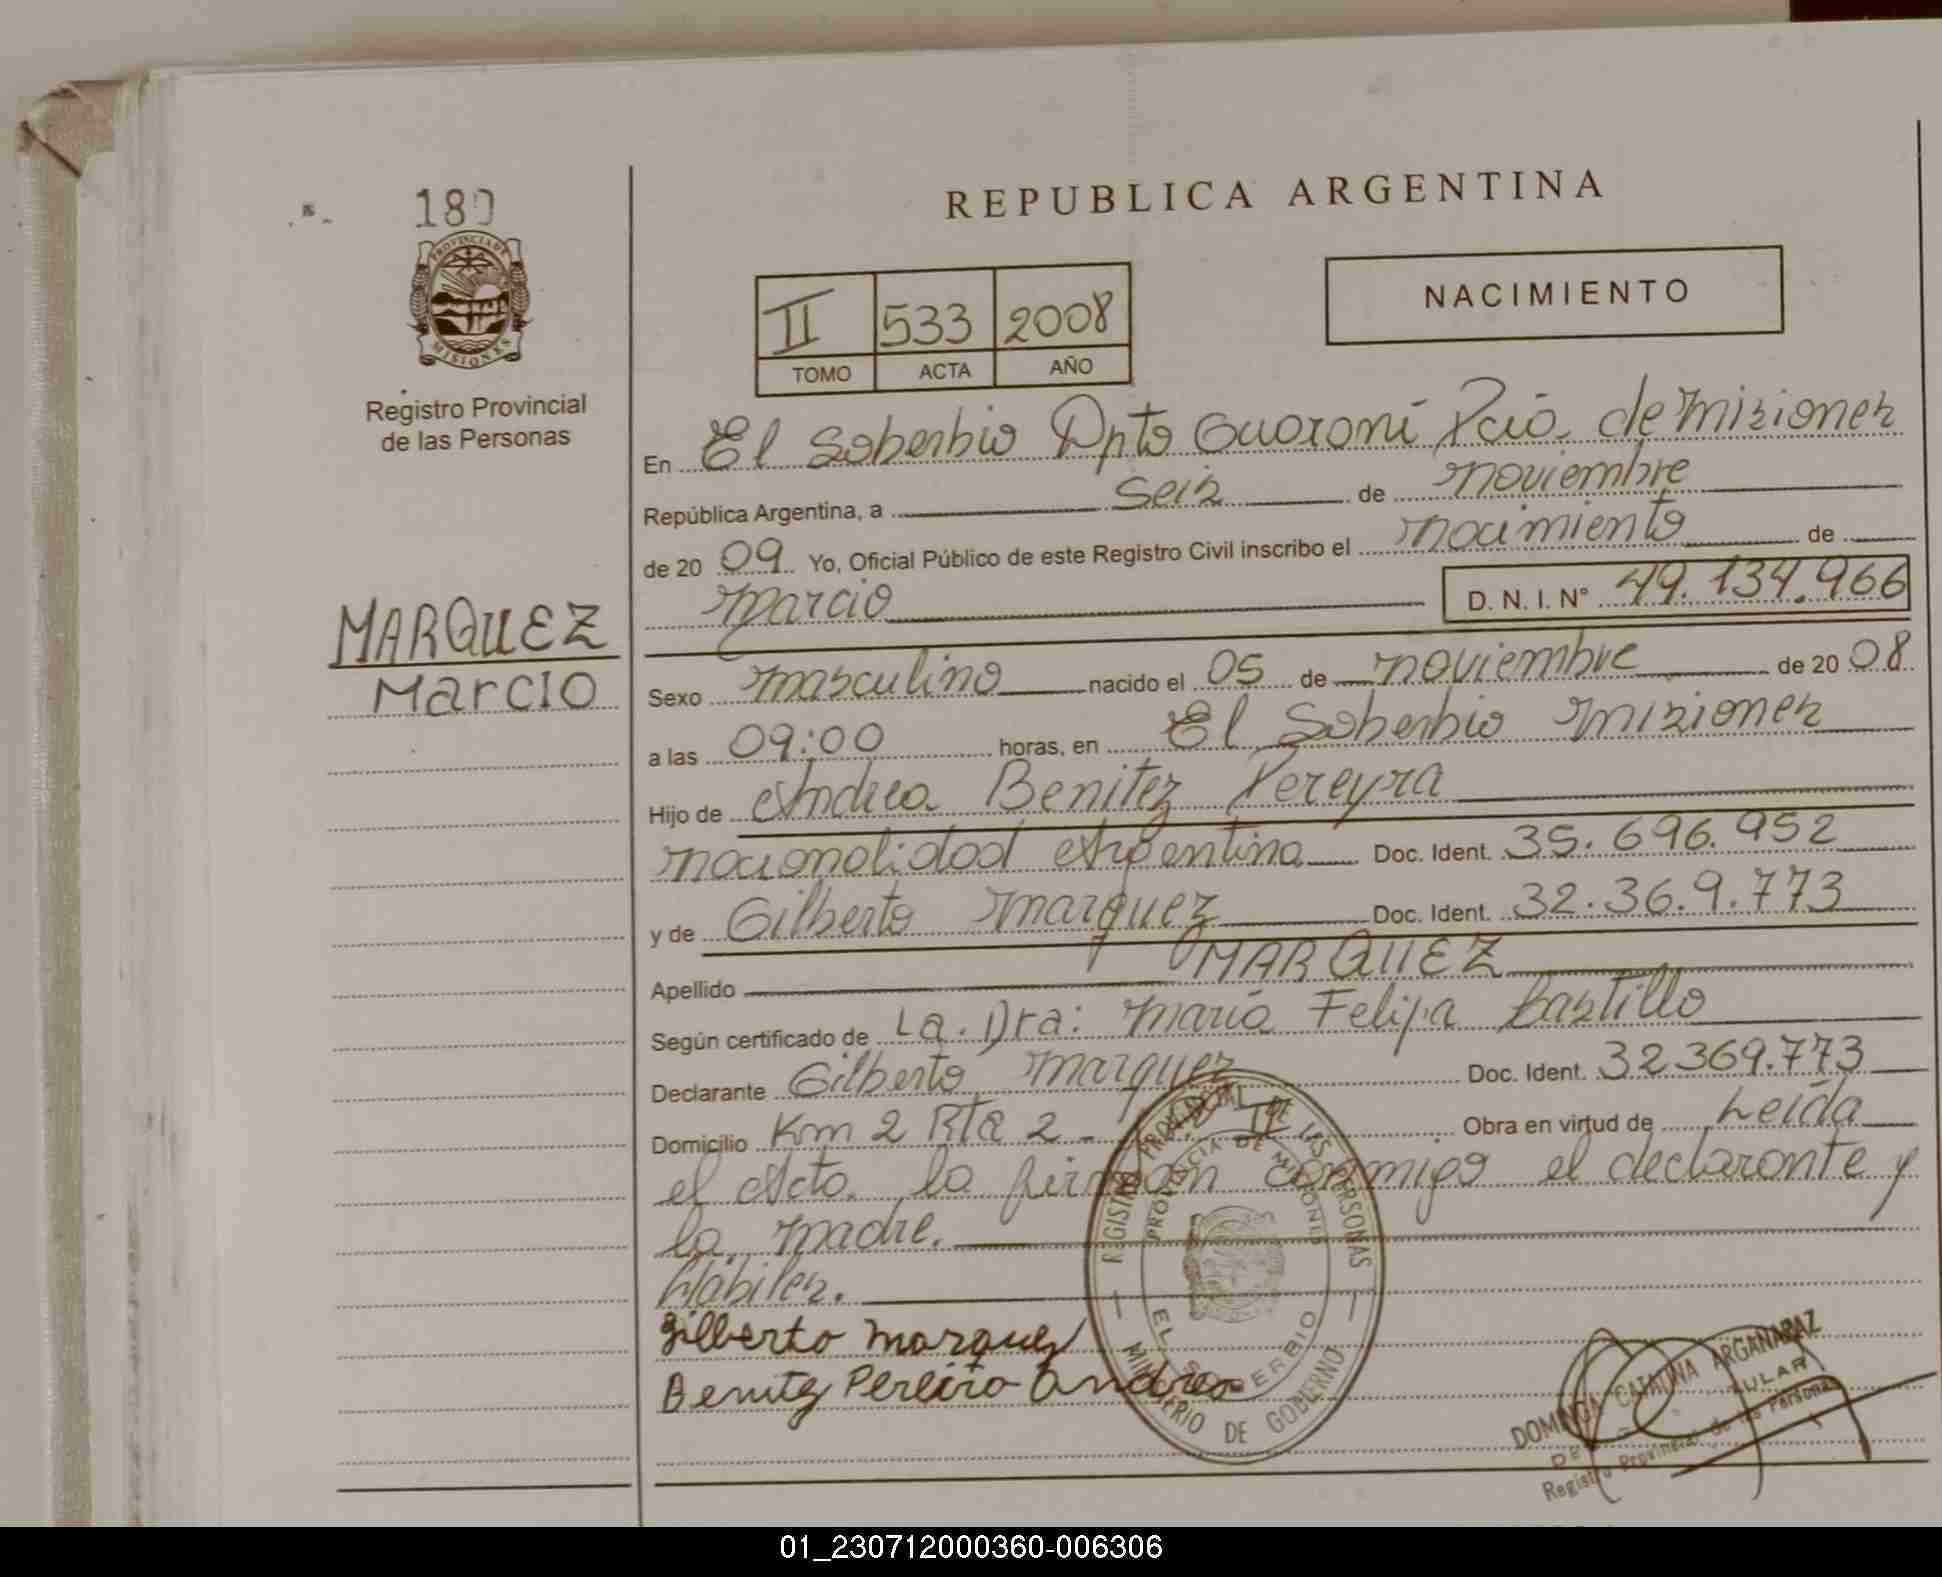 REPUBLICA ARGENTINA
NACIMIENTO
PROVINCIA DE
MISIONES
Registro Provincial
de las Personas
II 533 2008
TOMO ACTA AÑO
MARQUEZ
Marcio
En El Soberbio Dpto Guaraní Pcia. de Misiones
República Argentina, a seis de noviembre
de 20 09 Yo, Oficial Público de este Registro Civil inscribo el nacimiento de
Marcio D. N. I. N° 49.134.966
Sexo masculino nacido el 05 de noviembre de 20 08
a las 09:00 horas, en El Soberbio Misiones
Hijo de Andrea Benitez Pereyra
nacionalidad Argentina Doc. Ident. 35.696.952
y de Gilberto Marquez Doc. Ident. 32.369.773
Apellido MARQUEZ
Según certificado de La. Dra: Maria Felipa Castillo
Declarante Gilberto Marquez Doc. Ident. 32.369.773
Domicilio Km 2 Rta 2 - Obra en virtud de Leída
el Acta la firman conmigo el declarante y
la madre.
Hábiles.
Gilberto Marquez
Benitez Pereira Andrea
REGISTRO PROVINCIAL DE LAS PERSONAS
PROVINCIA DE MISIONES
EL SOBERBIO
MINISTERIO DE GOBIERNO
DOMINGA CATALINA ARGAÑARAZ
Registro Provincial de las Personas
01_230712000360-006306